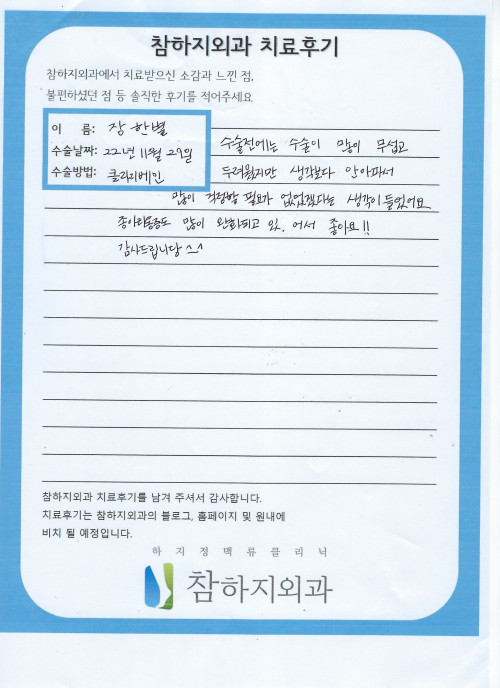 참하지외과 치료후기
참하지외과에서 치료받으신 소감과 느낀 점,
불편하셨던 점 등 솔직한 후기를 적어주세요.
이 름: 장한별
수술날짜: 22년 11월 29일
수술방법: 클라리베인
수술전에는 수술이 많이 무섭고
두려웠지만 생각보다 안아파서
많이 걱정할 필요가 없었겠다는 생각이 들었어요
종아리통증도 많이 완화되고 있어서 좋아요!!
감사드립니당 ^_^
참하지외과 치료후기를 남겨 주셔서 감사합니다.
치료후기는 참하지외과의 블로그, 홈페이지 및 원내에
비치 될 예정입니다.
하지정맥류클리닉
참하지외과